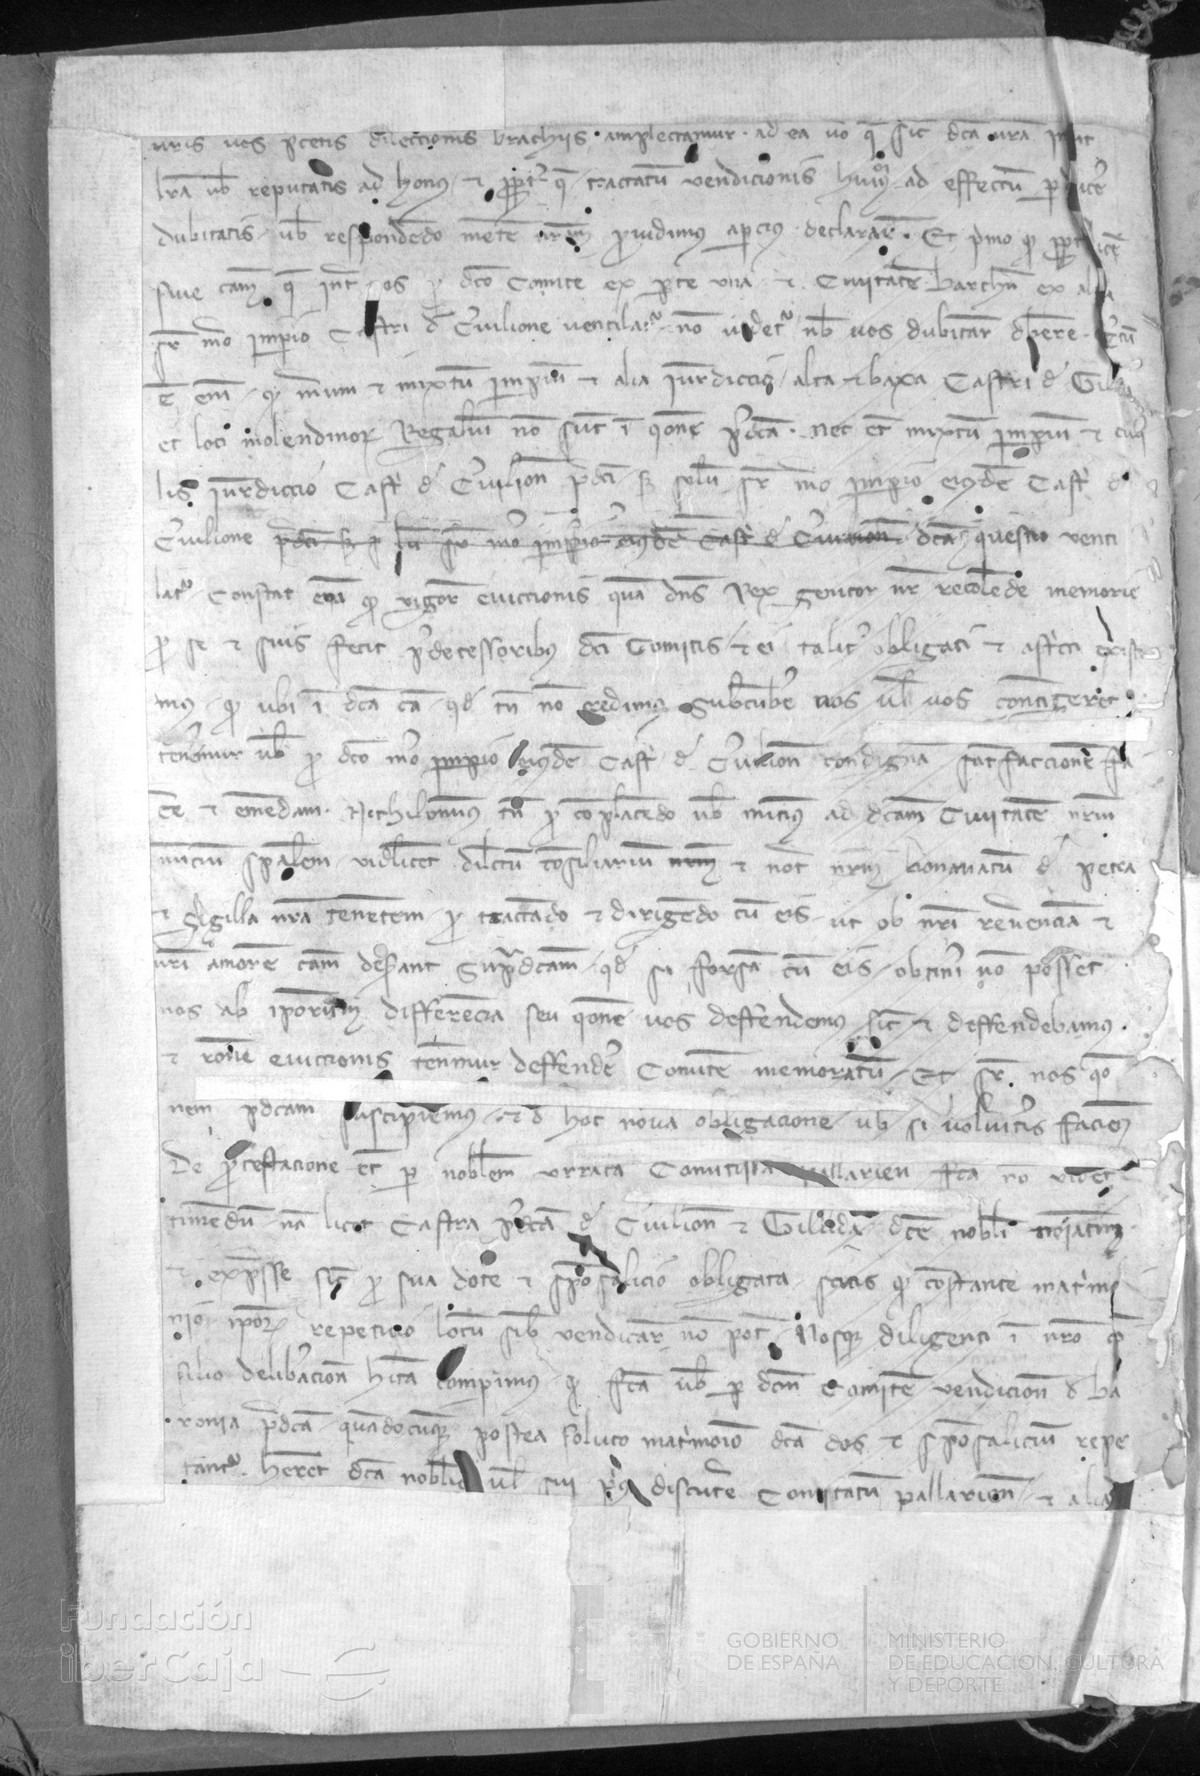 nris vos pcetis dileccionis brachiis amplectamur ad ea vo q sic dca vra
lra vb reputatis ad honus et ppt q tractatu vendicionis huius ad effectu pducer
dubitatis vb respondedo mete nram pvidimus apcius declarare Et pmo q ppt
sive cam q int os p dco Comite ex pte una et Civitate barchn ex alia
sr mo impio Castri d Evilione ventilar no videt nb vos dubitar dbere Ctu
e eni q mum et mixtu impiu et alia iurdiccio alta et baxa Castri d
et loci molendinor Regalum no sut i qone pdca nec et mixtu impiu et
lis iurdiccio Castr d Evilion pdci s solu sr mo impio eiusde Castr d
Evilione pdci s lit sr mo impio eiusde Castr d Evilion dca questio venti
lat Constat eni q vigor eviccionis qua dns Rex genitor nr recolede memorie
p se et suis fecit pdecessoribus dci Comitis et ei talit obligati et astcti existi
mus q ubi i dca ca qd tn no credimus subcube nos vl vos contigeret
tenemur vb p dco mo impio eiusde Castr d Evilion condigna satfaccione fa
cere et emedam Nichilominus tn p coplacedo vb mitimus ad dcam Civitate nrm
nunciu spalem videlicet dilctu cosiliariu nrm et not nrm bonanatu d petra
et sigilla nra tenetem p tractado et dirigedo cu eis ut ob nri reverencia et
nri amore cam desant supdcam qd si forsa cu eis obtineri no posset
nos ab ipor differencia seu qone vos deffendemus sic et deffendebamus
et rone eviccionis tenemur deffender Comite memoratu Et sr nos qo
nem pdcam suscipiemus et d hoc nova obligacione vb si volueritis faciem
De ptestacione et p noblem urraca Comitissa pallarien fca no videt
timedu na licet Castra pdca d Evilion et Gilida dce nobli
et expsse sit p sua dote et sposalicio obligata scitis q costante matimo
nio ipor repeticio locu sib vendicar no pot Nosq diligenti i nro co
silio delibacion hita compimus q fca vb p dcm Comite vendicion d ba
ronia pdca quadocuq postea soluto matimoio dca dos et sposaliciu repe
tant heret dca noblis vl sui pus discute Comitatu pallarion et alia
Fundación
iberCaja
GOBIERNO
DE ESPAÑA
MINISTERIO
DE EDUCACIÓN, CULTURA
Y DEPORTE